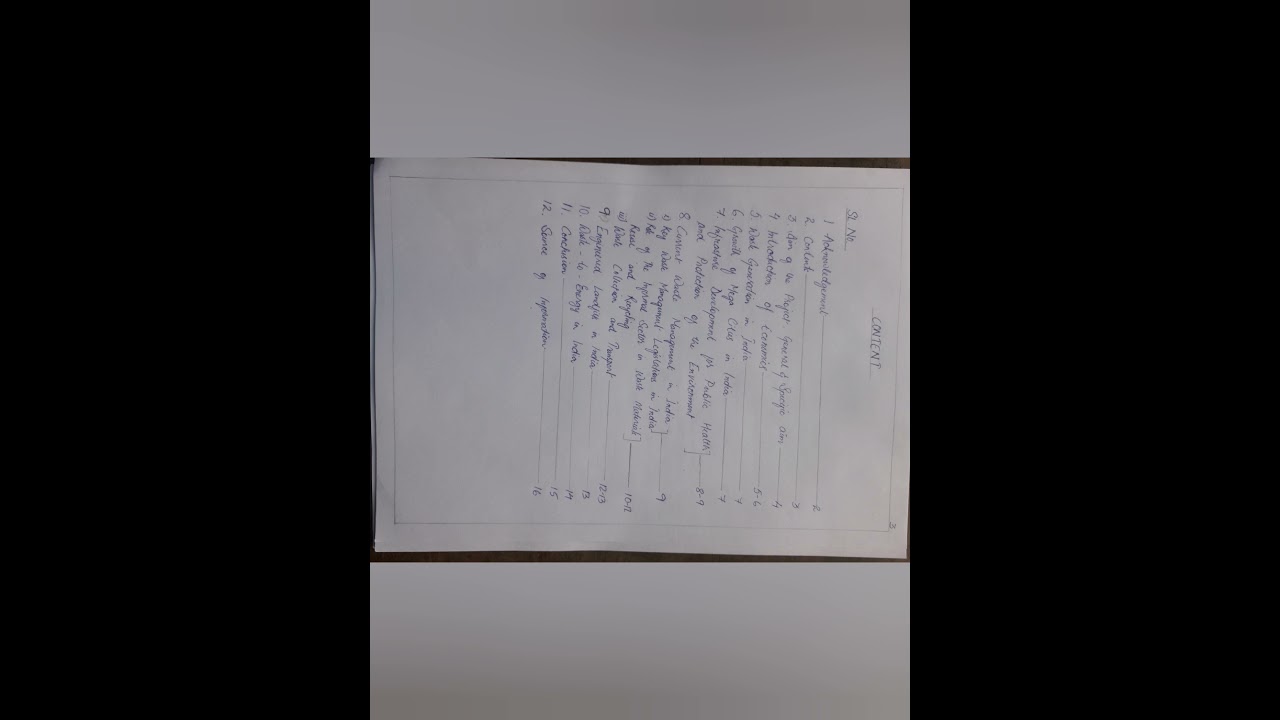 3
CONTENT
Sl No.
1 Acknowledgement 2
2. Contents 3
3. Aim of the Project: General & Specific aim 4
4 Introduction of Economics 5-6
5. Waste Generation in India 7
6. Growth of Mega Cities in India 7
7. Infrastructure Development for Public Health]
and Protection of the Environment 8-9
8. Current Waste Management in India
i) Key Waste Management Legislations in India] 9
ii) Role of The Informal Sector in Waste Materials
Reuse and Recycling] 10-12
iii) Waste Collection and Transport 12-13
9. Engineered Landfills in India 13
10. Waste-to-Energy in India 14
11. Conclusion 15
12. Source of Information 16